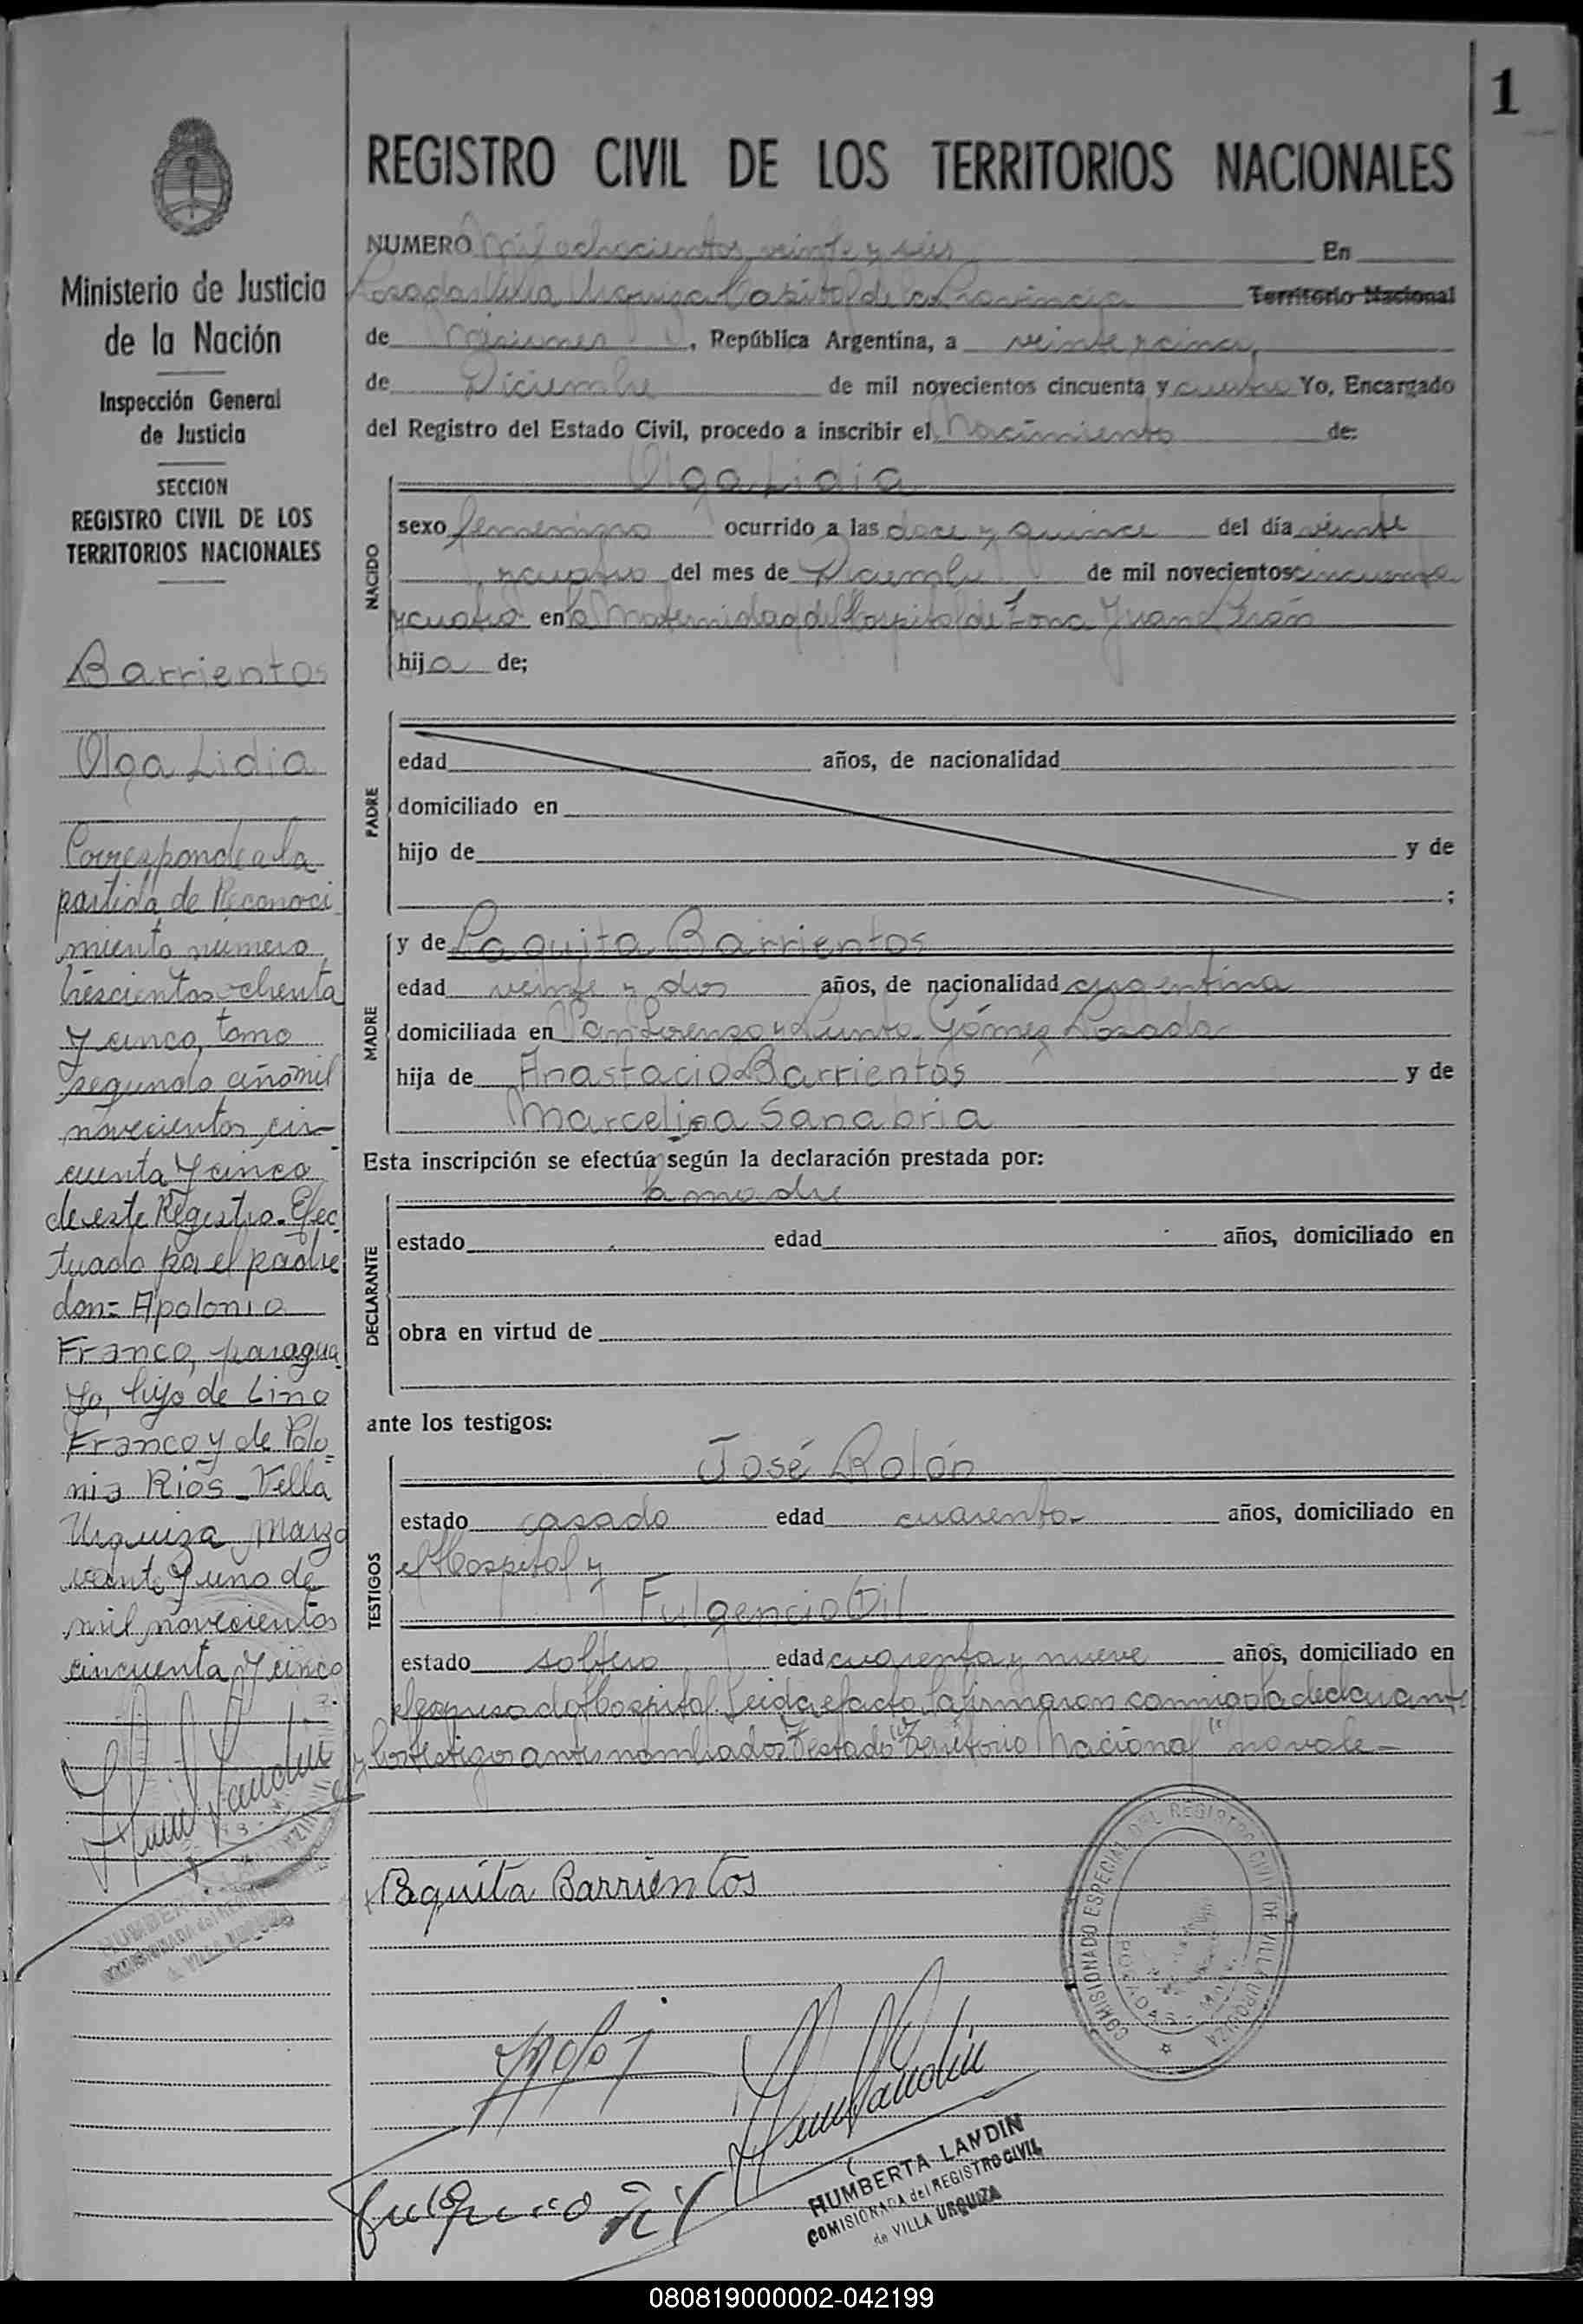 1
REGISTRO CIVIL DE LOS TERRITORIOS NACIONALES
NUMERO Mil ochocientos veinte y seis En
Posadas Villa Urquiza Capital de la Provincia Territorio Nacional
de Misiones, República Argentina, a veinte y cinco
de Diciembre de mil novecientos cincuenta y cuatro Yo, Encargado
del Registro del Estado Civil, procedo a inscribir el Nacimiento de:
Olga Lidia
NACIDO
sexo femenino ocurrido a las doce y quince del día veinte
y cuatro del mes de Diciembre de mil novecientos cincuenta
y cuatro en la Maternidad del Hospital de Zona Juan Perón
hija de;
PADRE
edad años, de nacionalidad
domiciliado en
hijo de y de
;
MADRE
y de Paquita Barrientos
edad veinte y dos años, de nacionalidad argentina
domiciliada en San Lorenzo y Punta Gómez Posadas
hija de Anastacio Barrientos y de
Marcelina Sanabria
Esta inscripción se efectúa según la declaración prestada por:
la madre
DECLARANTE
estado edad años, domiciliado en
obra en virtud de
ante los testigos:
José Rolón
TESTIGOS
estado casado edad cuarenta años, domiciliado en
el Hospital y
Fulgencio Gil
estado soltero edad cuarenta y nueve años, domiciliado en
el expresado Hospital. Leida el acta, la firmaron conmigo la declarante
y los testigos antes nombrados. Testado "Territorio Nacional" no vale-
Paquita Barrientos
Fulgencio Gil
HUMBERTA LANDIN
COMISIONADA del REGISTRO CIVIL
de VILLA URQUIZA
COMISIONADO ESPECIAL DEL REGISTRO CIVIL DE VILLA URQUIZA
POSADAS
Ministerio de Justicia
de la Nación
Inspección General
de Justicia
SECCION
REGISTRO CIVIL DE LOS
TERRITORIOS NACIONALES
Barrientos
Olga Lidia
Corresponde a la
partida de Reconoci
miento número
trescientos ochenta
y cinco, tomo
segundo año mil
novecientos cin-
cuenta y cinco
de este Registro. Efec
tuado por el padre
don: Apolonio
Franco, paragua
yo, hijo de Lino
Franco y de Polo=
nia Rios_Villa
Urquiza, Marzo
veinte y uno de
mil novecientos
cincuenta y cinco
080819000002-042199